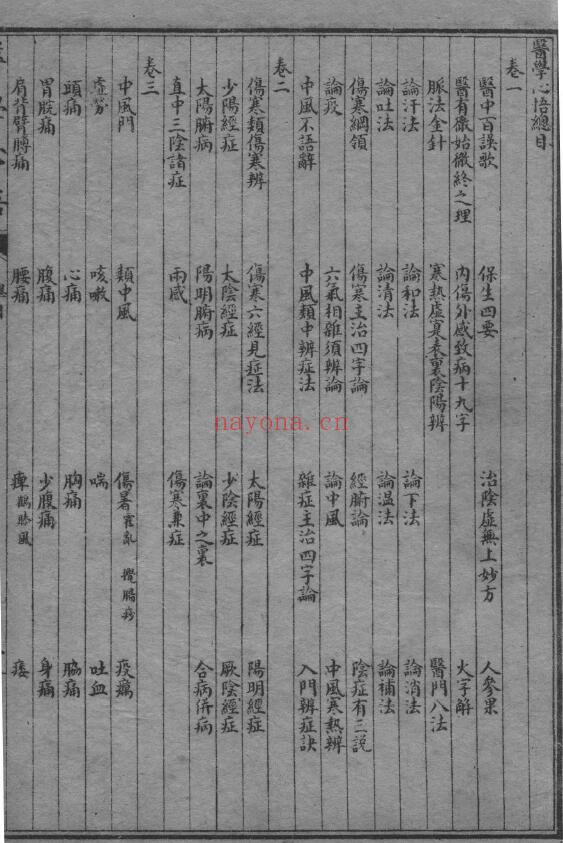 醫學心悟總目
卷一
醫中百誤歌 保生四要 治陰虛無上妙方 人參果
醫有徹始徹終之理 內傷外感致病十九字 火字解
脈法金針 寒熱虛實表裏陰陽辨 醫門八法
論汗法 論和法 論下法 論消法
論吐法 論清法 論溫法 論補法
傷寒綱領 傷寒主治四字論 經腑論 陰症有三說
論疫 六氣相雜須辨論 論中風 中風寒熱辨
中風不語辭 中風類中辨症法 雜症主治四字論 入門辨症訣
卷二
傷寒類傷寒辨 傷寒六經見症法 太陽經症 陽明經症
少陽經症 太陰經症 少陰經症 厥陰經症
太陽腑病 陽明腑病 論裏中之裏 合病併病
直中三陰諸症 兩感 傷寒兼症
卷三
中風門 類中風 傷暑 霍亂 攪腸痧 疫癘
虛勞 咳嗽 喘 吐血
頭痛 心痛 胸痛 脇痛
胃脘痛 腹痛 少腹痛 身痛
肩背臂膊痛 腰痛 痺 鶴膝風 痿
nayona.cn